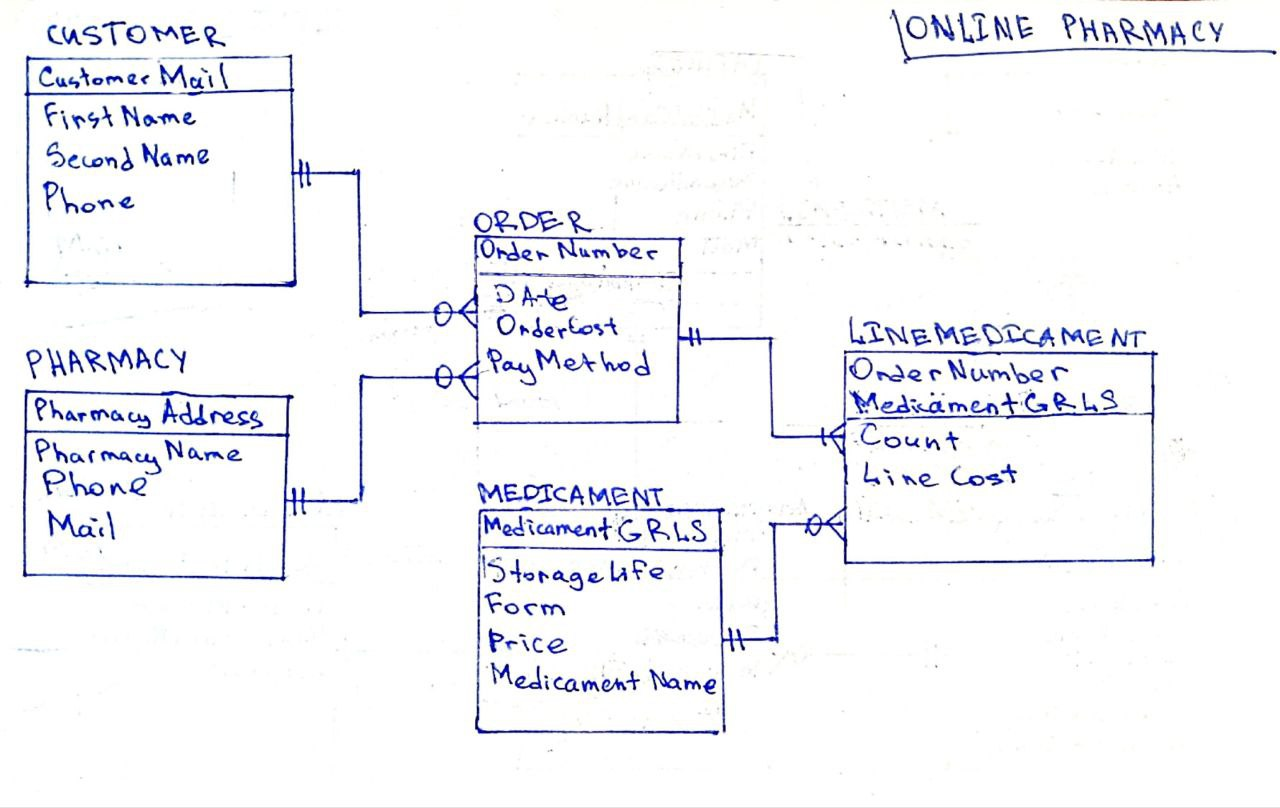 ONLINE PHARMACY
CUSTOMER
Customer Mail
First Name
Second Name
Phone
PHARMACY
Pharmacy Address
Pharmacy Name
Phone
Mail
ORDER
Order Number
DAte
OrderCost
Pay Method
MEDICAMENT
Medicament GRLS
Storage Life
Form
Price
Medicament Name
LINEMEDICAMENT
Order Number
Medicament GRLS
Count
Line Cost